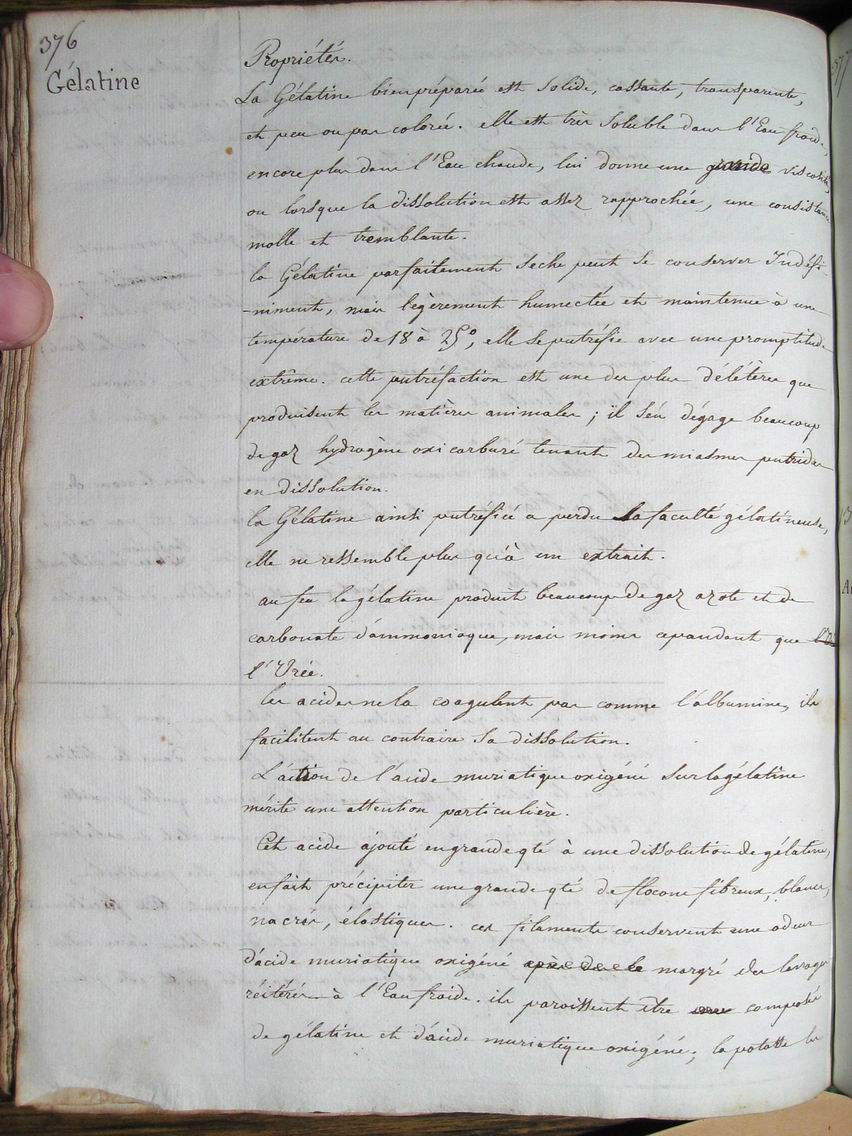 376
Gélatine
Propriétés.
La Gélatine bien préparée est solide, cassante, transparente,
et peu ou pas colorée. elle est très soluble dans l'Eau froide,
encore plus dans l'Eau chaude, lui donne une grande viscosité,
ou lorsque la dissolution est assez rapprochée, une consistance
molle et tremblante.
la Gélatine parfaitement seche peut se conserver Indéfi-
-niment, mais légèrement humectée et maintenue à une
température de 18 à 25°, elle se putréfie avec une promptitude
extrême. cette putréfaction est une des plus délétères que
produisent les matières animales ; il s'en dégage beaucoup
de gaz hydrogène oxi carburé tenant des miasmes putrides
en dissolution.
la Gélatine ainsi putréfiée a perdu la faculté gélatineuse,
elle ne ressemble plus qu'à un extrait.
au feu la gélatine produit beaucoup de gaz azote et de
carbonate d'ammoniaque, mais moins cependant que
l'Urée.
les acides ne la coagulent pas comme l'albumine, ils
facilitent au contraire sa dissolution.
L'action de l'acide muriatique oxigéné sur la gélatine
mérite une attention particulière.
Cet acide ajouté en grande qté à une dissolution de gélatine,
en fait précipiter une grande qté de flocons fibreux, blancs,
nacrés, élastiques. ces filaments conservent une odeur
d'acide muriatique oxigéné margré des lavages
réitérés à l'Eau froide. ils paroissent être composés
de gélatine et d'acide muriatique oxigéné; la potasse les